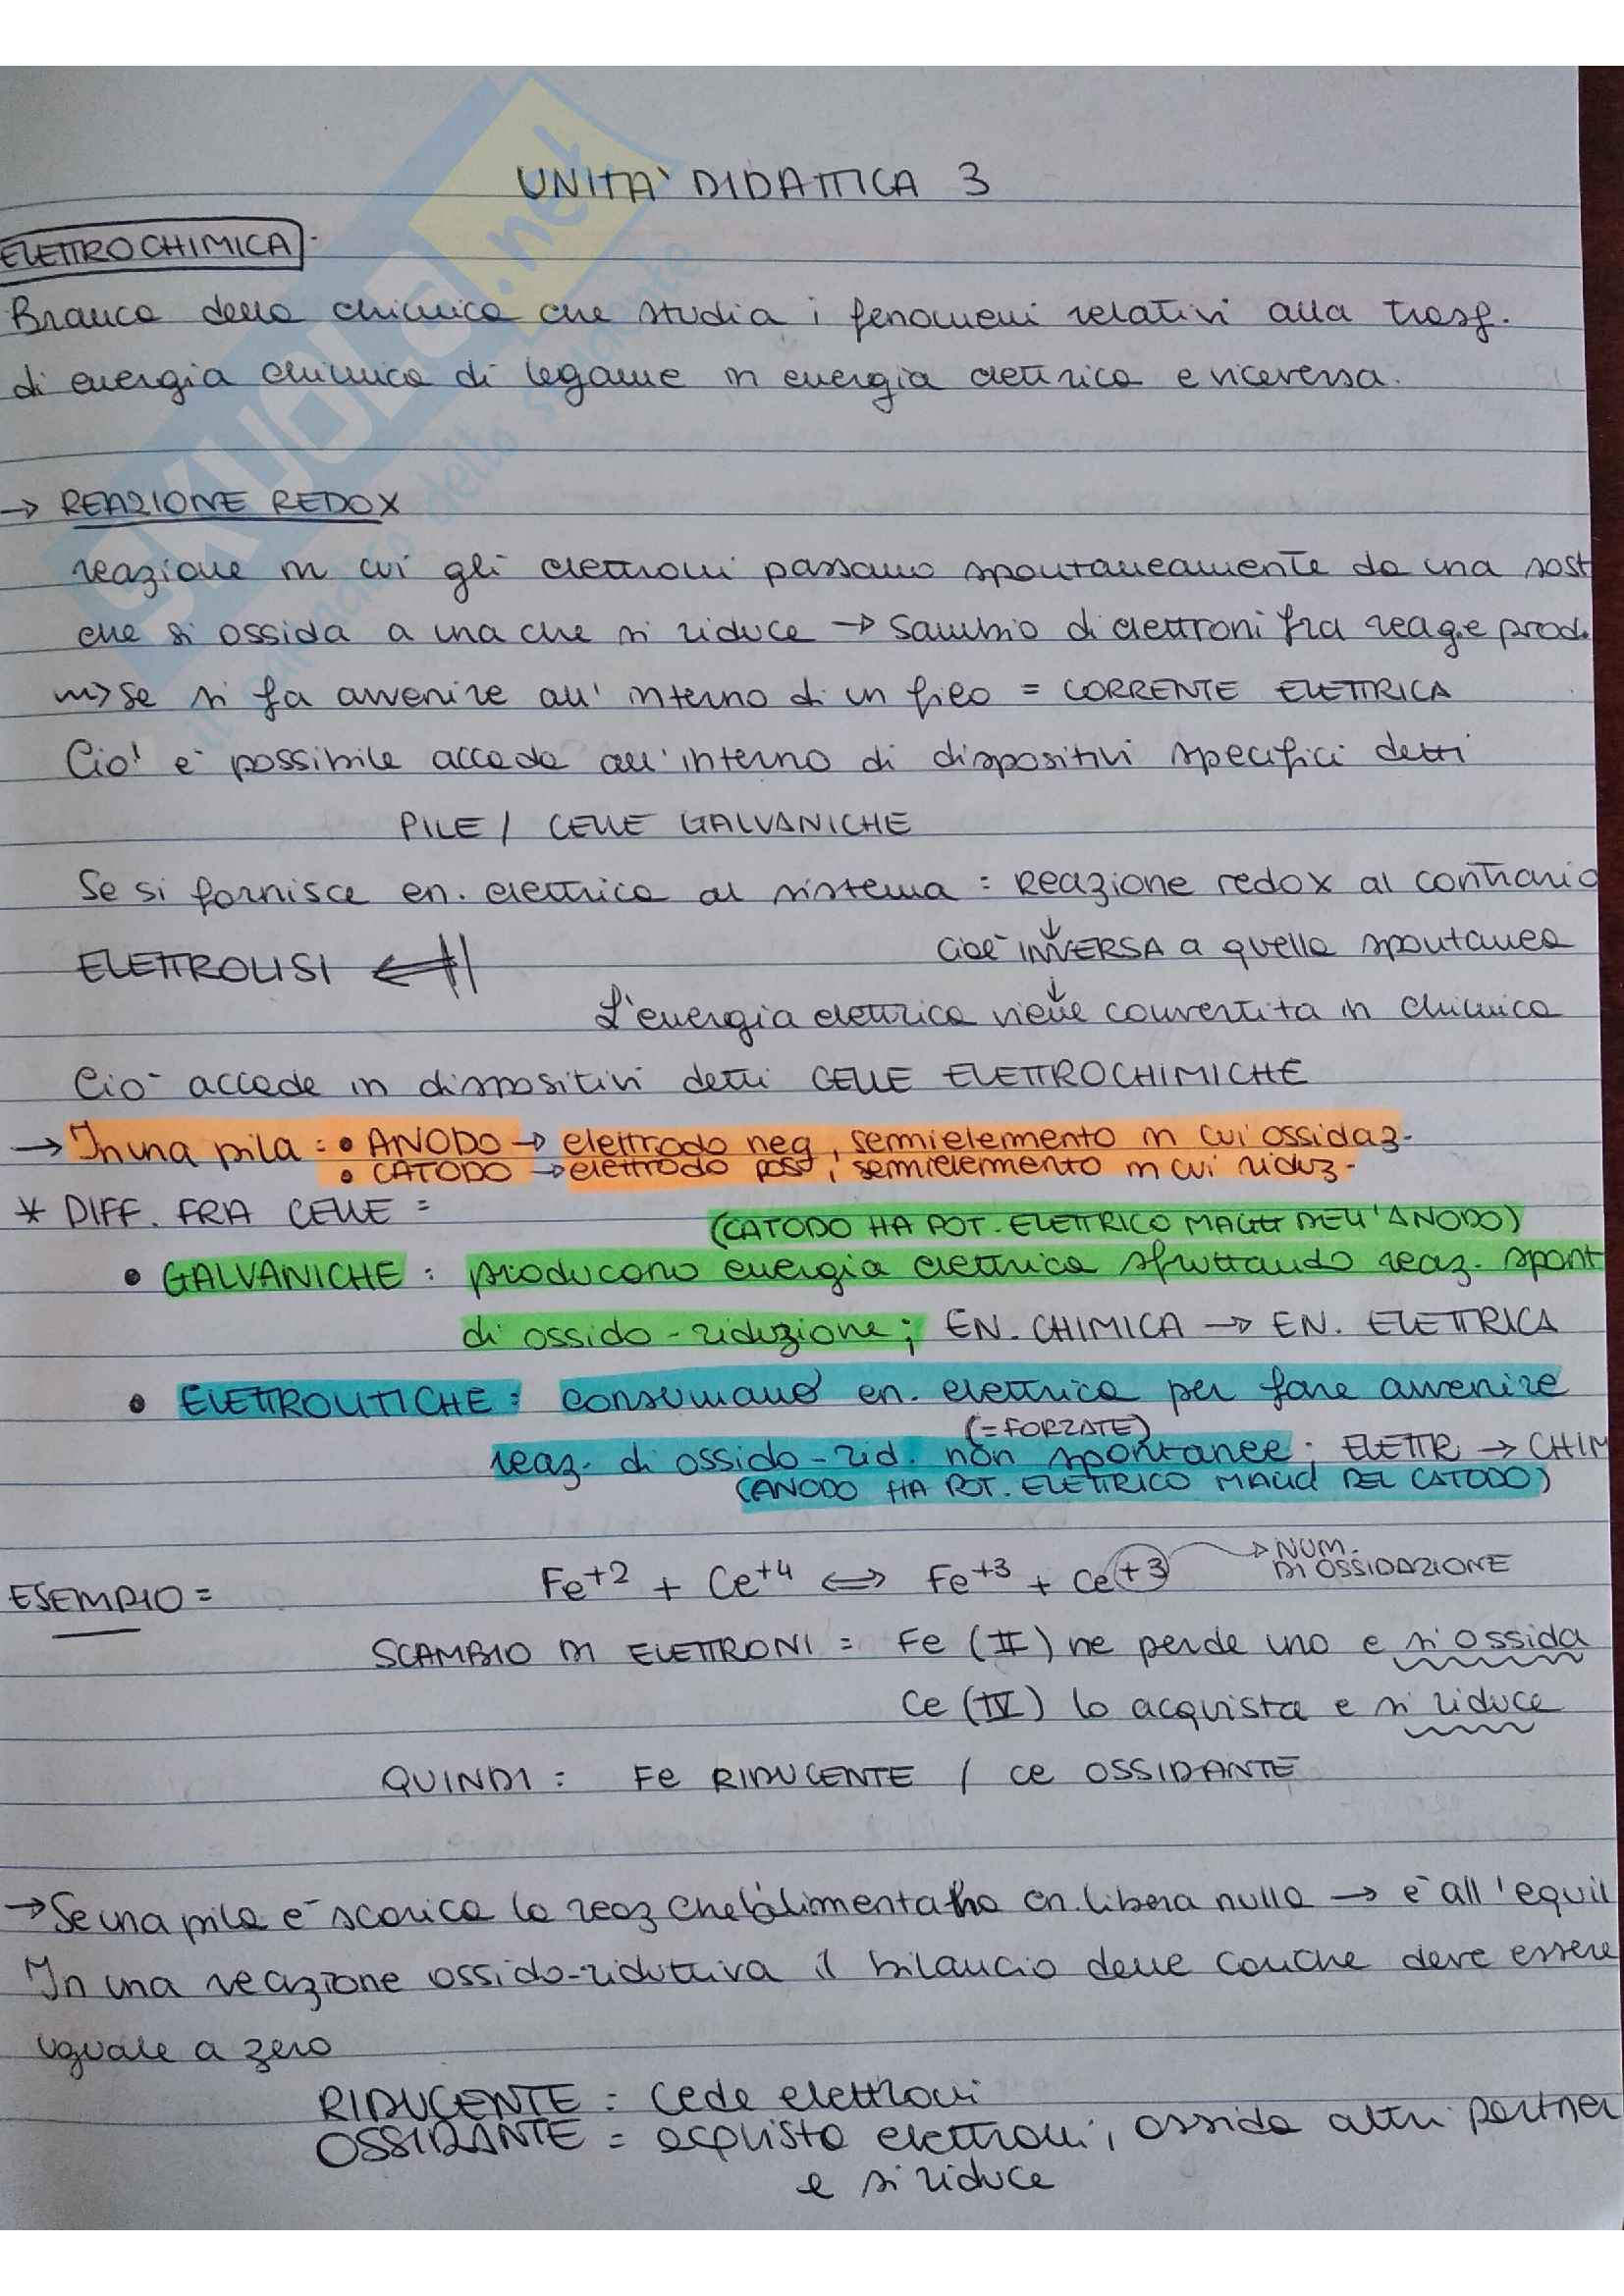 UNITA' DIDATTICA 3
ELETTROCHIMICA.
Branca della chimica che studia i fenomeni relativi alla trasf.
di energia chimica di legame in energia elettrica e viceversa.
→ REAZIONE REDOX
reazione in cui gli elettroni passano spontaneamente da una sost
che si ossida a una che si riduce → Scambio di elettroni fra reag.e prod.
Se si fa avvenire all'interno di un filo = CORRENTE ELETTRICA
Cio' e' possibile accada all'interno di dispositivi specifici detti
PILE / CELLE GALVANICHE
Se si fornisce en. elettrica al sistema = Reazione redox al contrario
↓
cioè INVERSA a quella spontanea
ELETTROLISI ⇐
↓
L'energia elettrica viene convertita in chimica
Cio' accade in dispositivi detti CELLE ELETTROCHIMICHE
→ In una pila : • ANODO → elettrodo neg, semielemento in cui ossidaz.
• CATODO → elettrodo pos, semielemento in cui riduz.
* DIFF. FRA CELLE =
(CATODO HA POT. ELETTRICO MAGG DELL'ANODO)
• GALVANICHE : producono energia elettrica sfruttando reaz. spont
di ossido-riduzione; EN. CHIMICA → EN. ELETTRICA
• ELETTROLITICHE : consumano en. elettrica per fare avvenire
(=FORZATE)
reaz. di ossido-rid. non spontanee ; ELETTR → CHIM
(ANODO HA POT. ELETTRICO MAGG DEL CATODO)
ESEMPIO = Fe+2 + Ce+4 ⇔ Fe+3 + Ce+3 → NUM. DI OSSIDAZIONE
SCAMBIO DI ELETTRONI = Fe (II) ne perde uno e si ossida
Ce (IV) lo acquista e si riduce
QUINDI : Fe RIDUCENTE / Ce OSSIDANTE
→ Se una pila e' scarica la reaz che l'alimenta ha en.libera nulla → e' all'equil
In una reazione ossido-riduttiva il bilancio delle cariche deve essere
uguale a zero
RIDUCENTE = cede elettroni
OSSIDANTE = acquista elettroni, ossida altri partner
e si riduce
SKUOLA.net